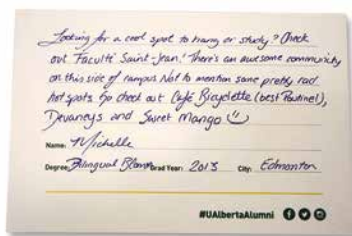 Looking for a cool spot to hang or study? Check
out Faculté Saint-Jean! There's an awesome community
on this side of campus. Not to mention some pretty rad
hot spots. Go check out Café Bicyclette (best Poutine!),
Devaneys and Sweet Mango
Name: Michelle
Degree: Bilingual BComm Grad Year: 2013 City: Edmonton
#UAlbertaAlumni